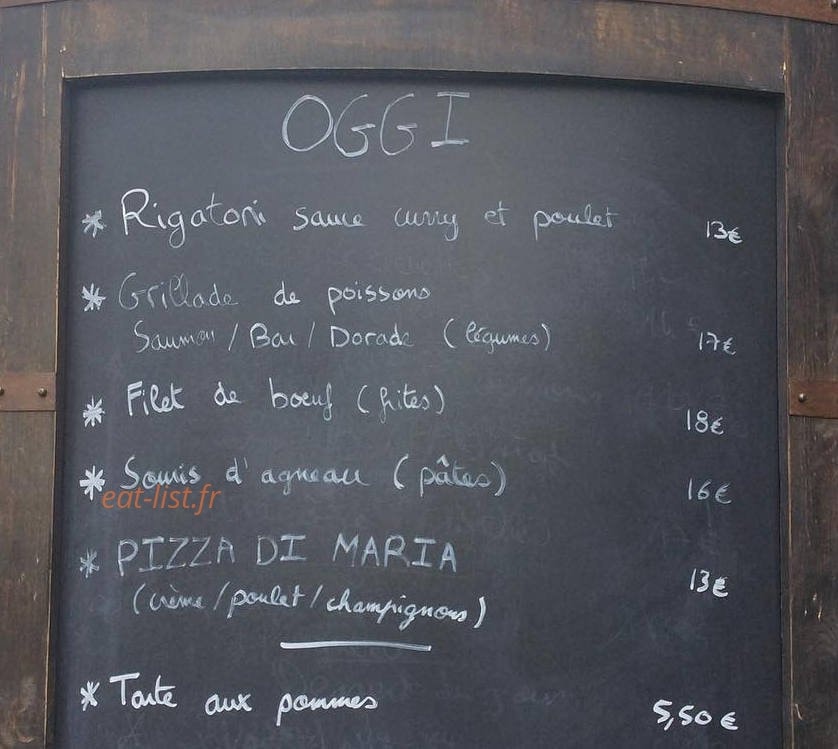 OGGI
* Rigatoni sauce curry et poulet 13€
* Grillade de poissons
Saumon / Bar / Dorade (légumes) 17€
* Filet de bœuf (frites) 18€
* Souris d'agneau (pâtes) 16€
eat-list.fr
* PIZZA DI MARIA
(crème / poulet / champignons) 13€
* Tarte aux pommes 5,50 €